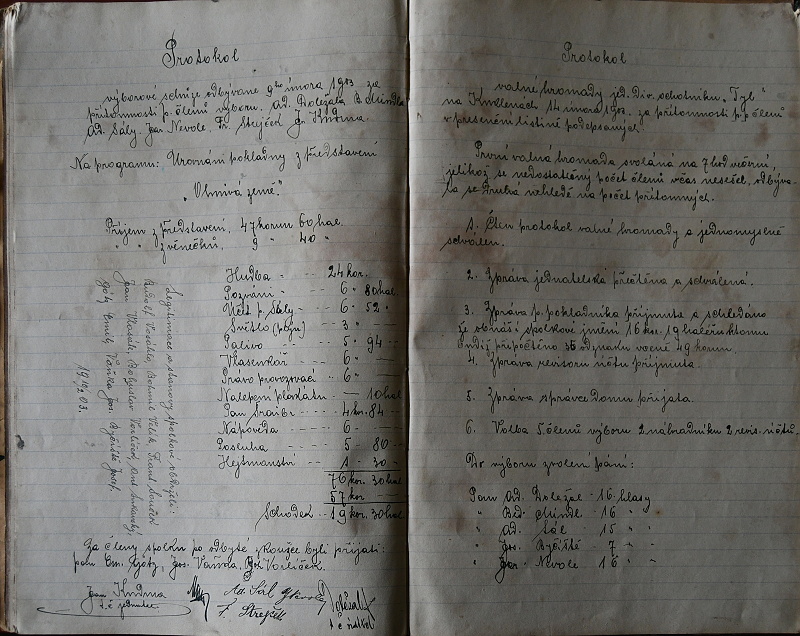 Protokol
výborové schůze odbývané 9ho února 1903 za
přítomnosti p. členů výboru. Ad. Doležala B. Mindla
Ad. Sály. Jar. Nevole. Fr. Strejček Jan Kudrna.
Na programu: Urovnání pokladny z představení
„Ohnivá země."
Příjem z představení. 47 korun 60 hal.
" " z věnečků. 9 " 40 "
Hudba - 24 kor.
Pozvání - 6 " 80 hal
Účet p. Sály - 6 " 52 "
Světlo (plyn) - 3 " —
Palivo - 5 " 94 —
Vlasenkář - 6 " —
Právo provozovací 6 " —
Nalepení plakátů — 10 hal
Pan Šraibr - 4 kor. 84 —
Nápověda - 6 - —
Posluha - 5 - 80 -
Hejtmanství - 1 - 30 -
76 kor. 30 hal
57 kor —
Schodek - 19 kor. 30 hal
Legitimace a stanovy spolkové obdrželi:
Rudolf Vosáhlo, Bohumil Vlček, Frant.
Jan Vlasák, Bohuslav Vorlíček, Ant.
Götz Emil, Vaňka Jos. Býčiště Josef.
19 12/2 03.
Za členy spolku po odbyté zkoušce byli přijati:
pan Em. Götz, Jos. Vaňda, Vorlíček.
Jan Kudrna
t. č. jednatel
Ad. Sál J Nevole
F. Strejček
Doležal
Protokol
valné hromady jed. Div. ochotníků „Tyl"
na Kuklenách 14 února 1903. za přítomnosti p.p. členů
v presenční listině podepsaných.
První valná hromada svolaná na 7 hod večerní,
jelikož se nedostatečný počet členů včas nesešel, odbýva-
la se druhá nehledě na počet přítomných.
1. Čten protokol valné hromady a jednomyslně
schválen.
2. Zpráva jednatelská přečtena a schválena.
3. Zpráva p. pokladníka přijmuta a shledáno
že obnáší spolkové jmění 16 kor. 19 haléřů k tomu
budiž připočteno 35 odznaků v ceně 49 korun.
4. Zpráva revisorů účtů přijmuta.
5. Zpráva správce domu přijata.
6. Volba 5. členů výboru 2 náhradníků 2 revis. účtů.
Do výboru zvoleni páni:
Pan Ad. Doležal - 16 hlasy
" Bed. Mindl - 16 "
" Ad. Sál - 15 " "
" Jos. Býčiště - 7 " "
" Jar. Nevole - 16 " "